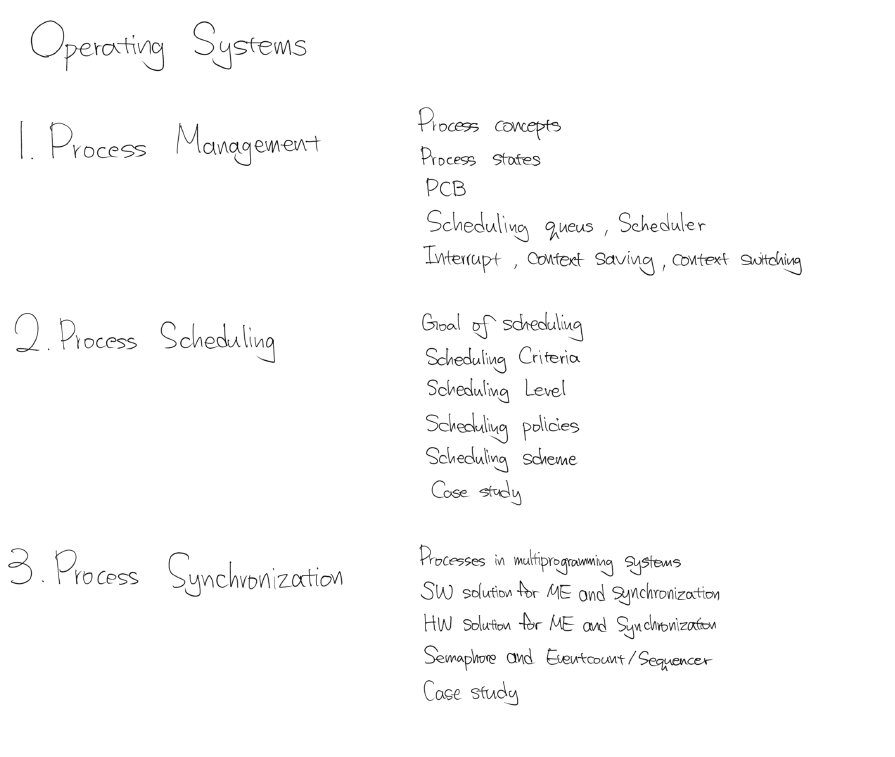 Operating Systems
1. Process Management
Process concepts
Process states
PCB
Scheduling queus, Scheduler
Interrupt, Context Saving, context switching
2. Process Scheduling
Goal of scheduling
Scheduling Criteria
Scheduling Level
Scheduling policies
Scheduling scheme
Case study
3. Process Synchronization
Processes in multiprogramming systems
SW solution for ME and Synchronization
HW solution for ME and Synchronization
Semaphore and Eventcount/Sequencer
Case study